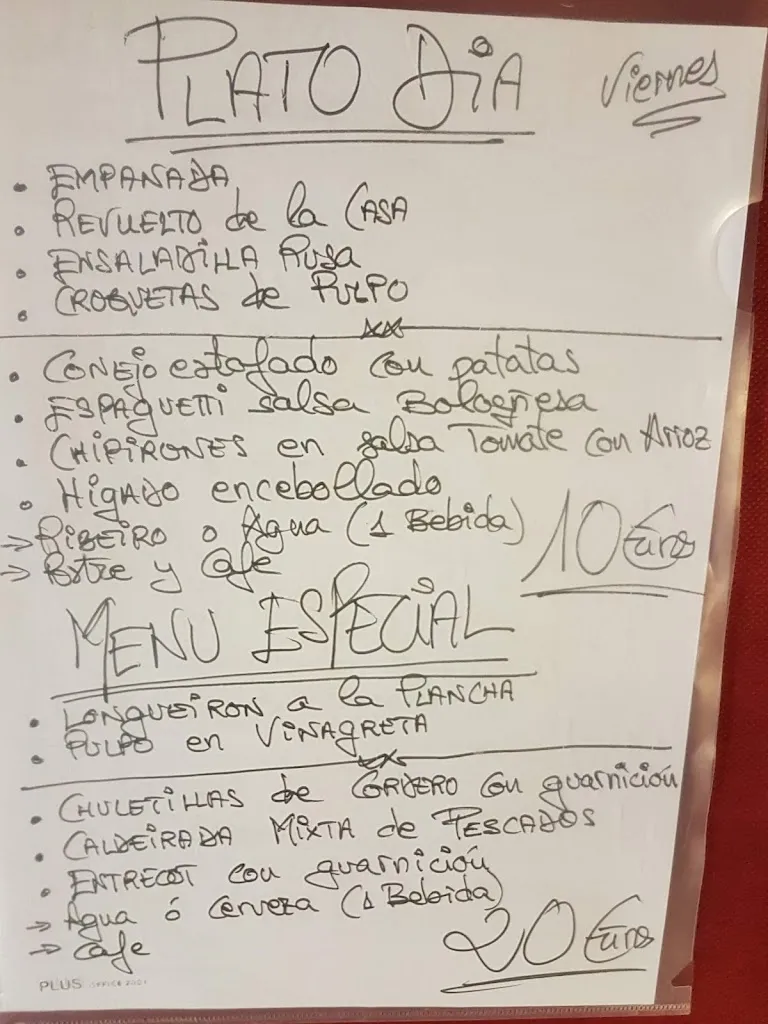 PLATO DiA
Viernes
• EMPANADA
• REVUELTO de la CASA
• ENSALADILLA RUSA
• CROQUETAS de PULPO
xx
• CONEJO estofado con patatas
• ESPAGUETTI salsa Bologñesa
• CHIPIRONES en salsa Tomate con Arroz
• HIGADO encebollado
→ RIBEIRO o Agua (1 Bebida)
→ Postre y Cafe
10 Euros
MENU ESPECiAL
• LONQUEIRON a la PLANCHA
• PULPO en VINAGRETA
xx
• CHULETILLAS de CORDERO con guarnición
• CALDEIRADA MIXTA de PESCADOS
• ENTRECOT con guarnición
→ Agua ó Cerveza (1 Bebida)
→ Cafe
20 Euros
PLUS OFFICE